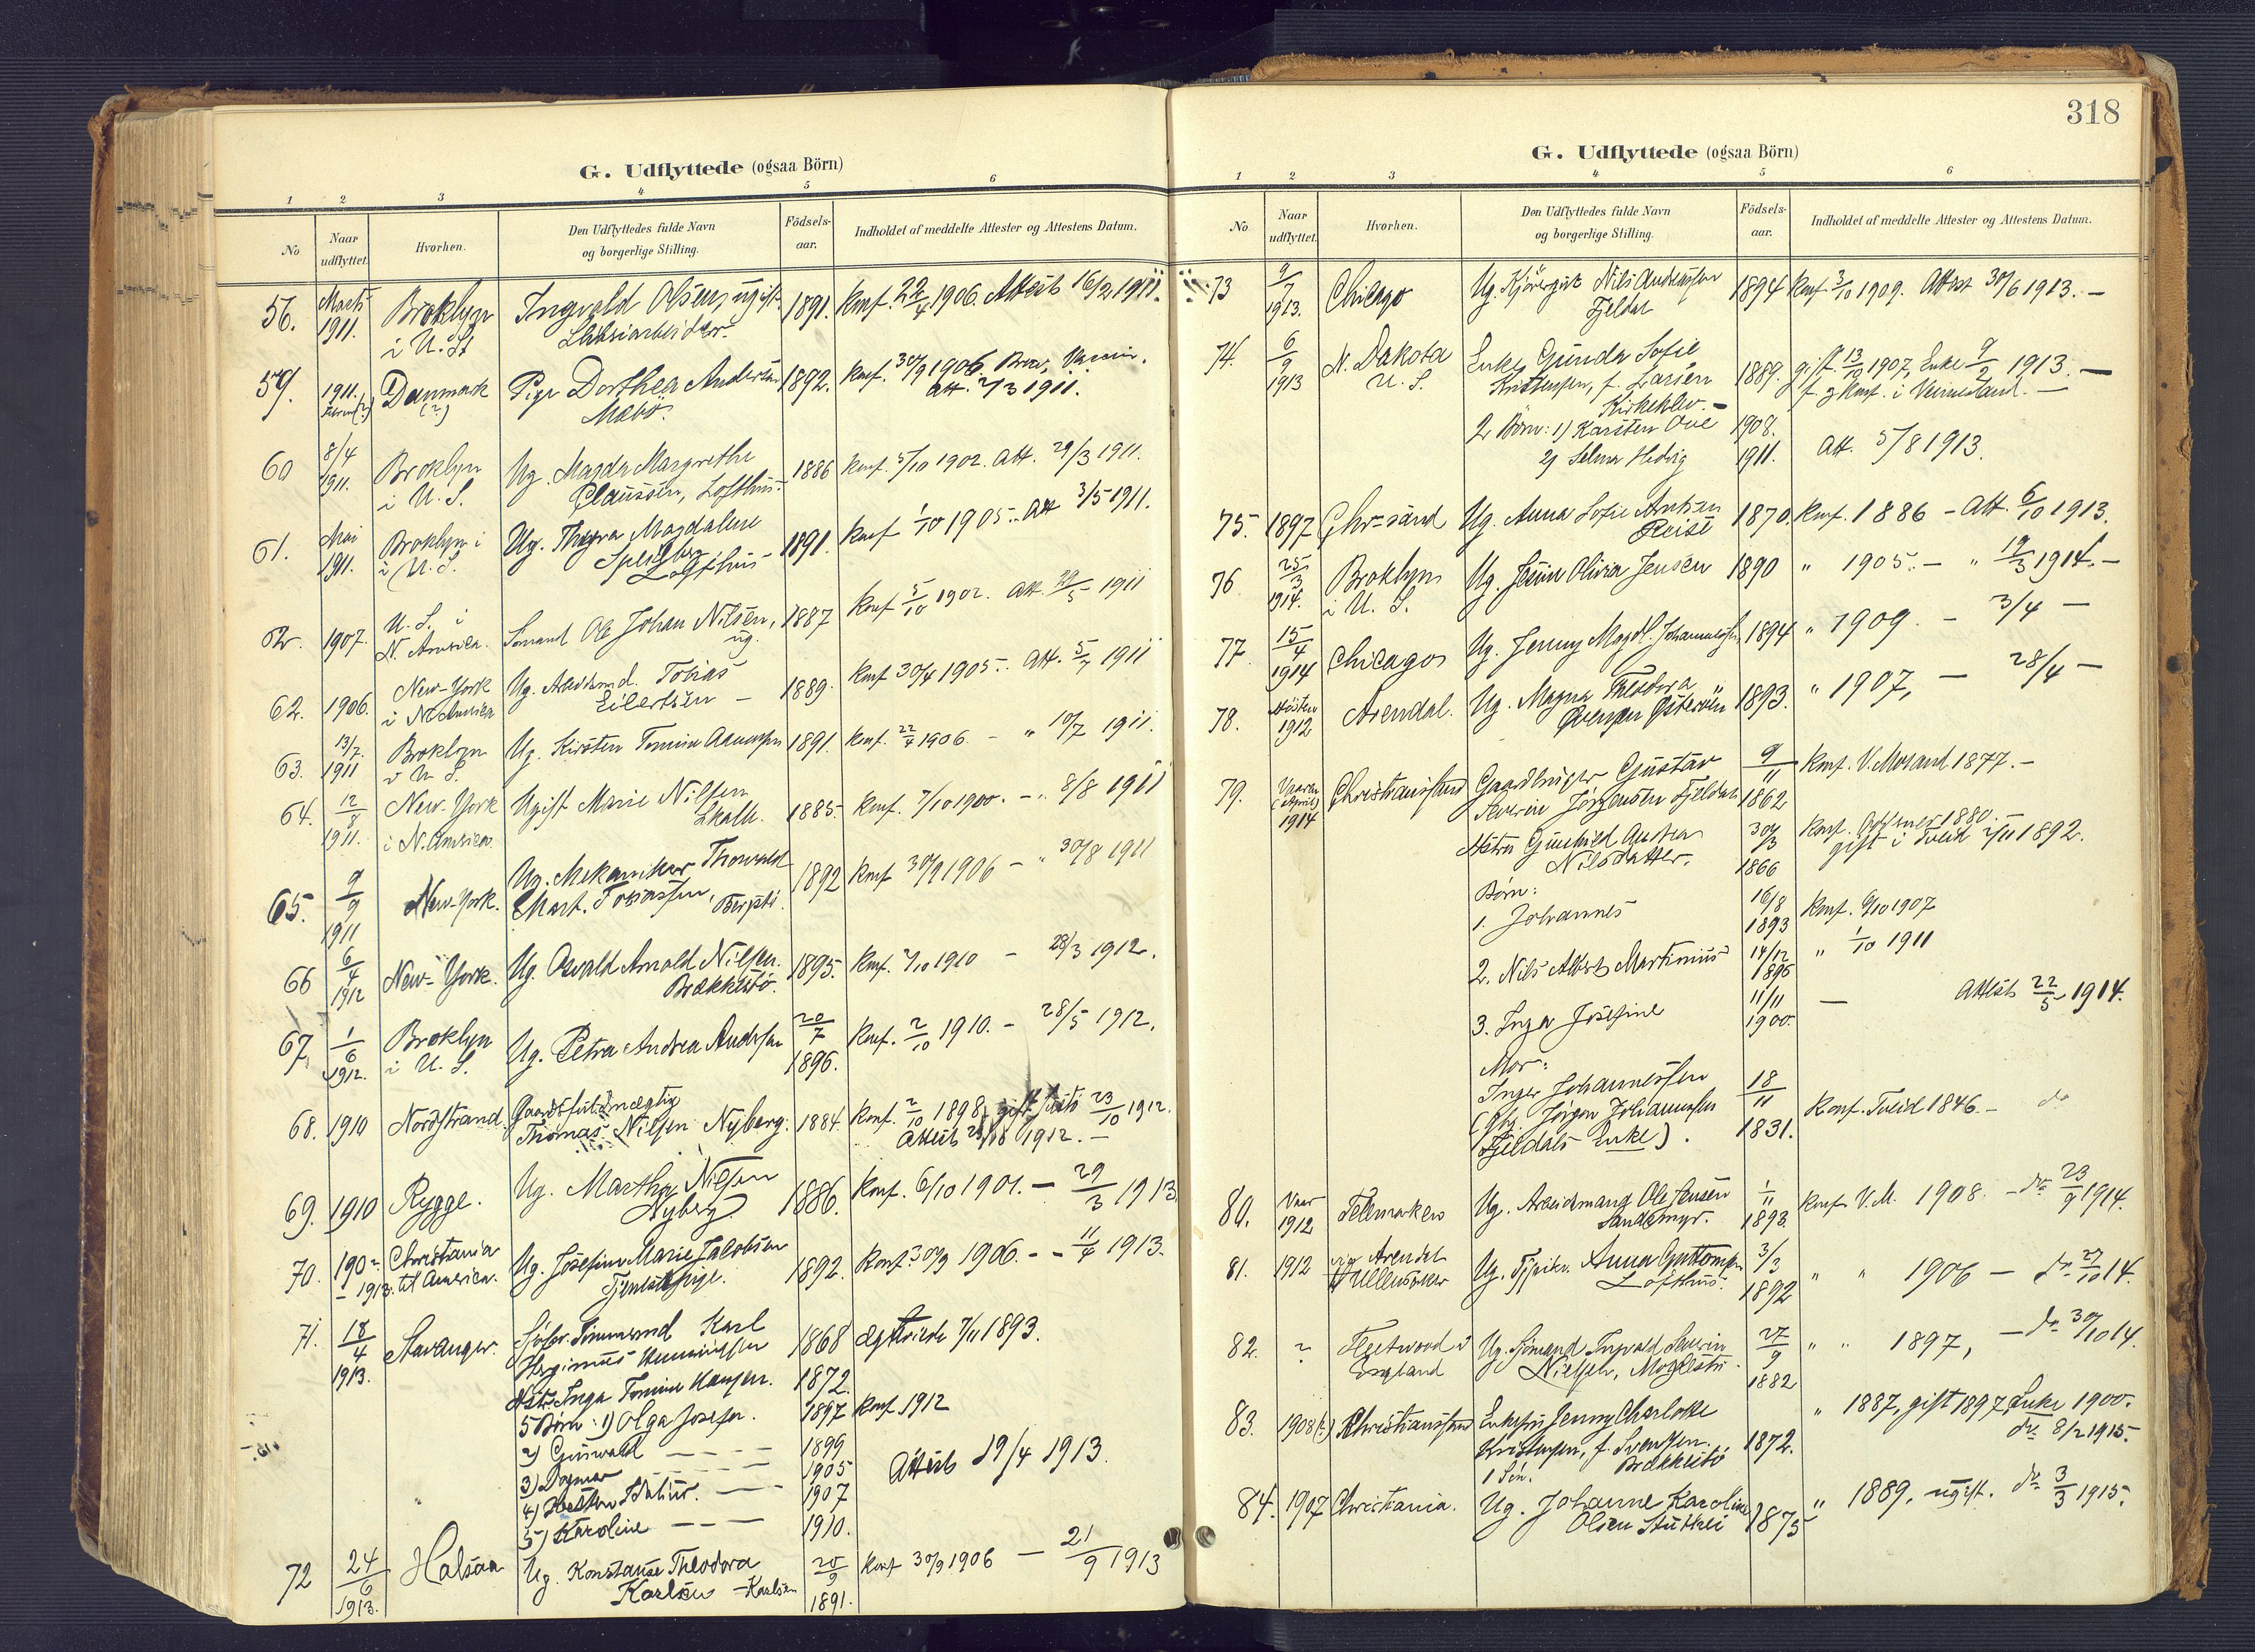 G. Udflyttede (ogsaa Börn)
1 2 3 4 5 6
No
Naar udflyttet.
Hvorhen.
Den Udflyttedes fulde Navn og borgerlige Stilling.
Födsels-aar.
Indholdet af meddelte Attester og Attestens Datum.
56. Marts 1911. Broklyn i U. St Ingvald Olsen, ugift 1891. Konf. 22/4 1906. Attest 16/2 1911.
59. 1911. Danmark (?) Pige Dorthea Andersen 1892. Konf. 30/9 1906.
Mæbø. Att. 2/3 1911.
60 8/4 1911. Broklyn i U. S. Ug. Magda Margrethe
Claussen, Lofthus 1886 Konf. 5/10 1902. Att. 29/3 1911.
61. Mai 1911. Broklyn i U. S. Ug. Thyra Magdalene
Lofthus 1891. Konf 1/10 1905. Att 3/5 1911.
62. 1907. U. S. i N. Amerika. Sømand Ole Johan Nilsen, ug. 1887 Konf 5/10 1902. Att. 29/5 1911
62. 1906. New-York i N. Amerika Ug. Arbeidsmd. Tobias
Eilertsen 1889. Konf 30/4 1905. Att. 5/7 1911
63. 13/7 1911 Broklyn U. S. Ug. Kirsten Tomine Aanensen 1891. Konf. 22/4 1906. - " 10/7 1911.
64. 12/8 1911. New-York i N. Amerika Ugift Marie Nilsen
1885. Konf. 7/10 1900. - " 8/8 1911
65. 9/9 1911 New-York. Ug. Mekaniker Thorvald
Mart. Tobiassen, 1892 Konf 30/9 1906 - " 30/8 1911
66 6/4 1912 New-York. Ug. Osvald Arnold Nilsen.
Brækkestø. 1895. Konf. 2/10 1910 - 28/3 1912.
67. 1/6 1912. Broklyn i U. S. Ug. Petra Andrea Andersen 20/7 1896. Konf. 2/10 1910. - 28/5 1912.
68. 1910 Nordstrand. Gaardsfuldmægtig
Thomas Nilsen Nyberg. 1884. Konf. 2/10 1898, gift 23/10 1912.
Attest 1912. -
69. 1910 Rygge. Ug. Marthe Nilsen
Nyberg 1886. Konf. 6/10 1901. - 29/3 1913
70. 1902 - 1913. Christiania til Amerika. Ug. Josefine Marie Jakobsen
Tjenestepige. 1892. Konf. 30/9 1906. - 11/4 1913.
71. 18/4 1913. Stavanger. Tømmermd Karl
1868 Ægteviede 7/11 1893.
Hstr. Inga Tomine Hansen. 1872.
5 Børn: 1) Olga Josefa. 1897 Konf 1912
2) Gunvald 1899
3) Dagmar 1905 Attest 19/4 1913.
4) 1907
5) Karoline 1910.
72 24/6 1913. Halsaa Ug. Konstanse Theodora
Karlsen - Karlsen 20/9 1891. Konf 30/9 1906 - 21/9 1913
318
G. Udflyttede (ogsaa Börn)
1 2 3 4 5 6
No
Naar udflyttet.
Hvorhen.
Den Udflyttedes fulde Navn og borgerlige Stilling.
Födsels-aar.
Indholdet af meddelte Attester og Attestens Datum.
73 9/7 1913. Chicago Ug. Nils Andreassen
Fjeldal 1894 Konf 3/10 1909. Attest 30/6 1913. -
74. 6/9 1913 N. Dakota U. S. Enke Gunda Sofie
Kristensen, f. Larsen 1889. gift 13/10 1907, Enke 9/2 1913. -
Kirkeklev. - f. og konf. i Vennesland. -
2 Børn: 1) Karsten Ove 1908.
2) Selma Hedvig 1911. Att. 5/8 1913.
75. 1897 Chr-sand Ug. Anna Sofie Arntsen
1870. Konf. 1886 - Att. 6/10 1913.
76 25/3 1914. Broklyn i U. S. Ug. Olivia Jensen 1890 " 1905. - " 19/3 1914. -
77. 15/4 1914 Chicago Ug. Jenny Magdl. Johannessen 1894 " 1909. - 3/4 -
78. Høsten 1912 Arendal. Ug. Magna Theodora
1893. " 1907, - 28/4 -
79. Vaaren (April) 1914 Christianssand Gaardbruger Gustav 9/11 Konf. V. Moland 1877. -
Severin Jørgensen Fjeldal 1862
Hstru Gunhild Andrea 30/3 Konf. 1880. -
Nilsdatter. 1866 gift i Tveid 2/11 1892.
Børn:
1. Johannes 16/8 1893 Konf. 6/10 1907
2. Nils Albert Martinius 14/12 1895 " 1/10 1911
3. Inga Josefine 11/11 1900 - Attest 22/5 1914.
Mor:
Inger Johannessen 18/11
(Gbr. Jørgen Johannessen
Fjeldals Enke). 1831. Konf. Tveid 1846. - do
80. Vaar 1912 Telemarken Ug. Arbeidsmand Ole Jensen
Sandsmyr. 1/11 1893 Konf. V. M. 1908. - do 23/9 1914.
81. 1912 Arendal Ullensaker Ug. Anna Guttormsen
Lofthus. 3/3 1892 " " 1906 - do 27/10 14.
82. ? Fleetwood i England Ug. Sømand Ingvald Severin
Nielsen, 27/9 1882 " " 1897, - do 30/10 14.
83. 1908(?) Christianssand Jenny Charlotte
Kristensen, f. Svendsen. 1872. " 1887, gift 1897, Enke 1900.
1 Søn. Brækkestø do 8/2 1915.
84. 1907 Christiania. Ug. Johanne Karoline
Olsen 1875 " 1889, ugift. do 3/3 1915.